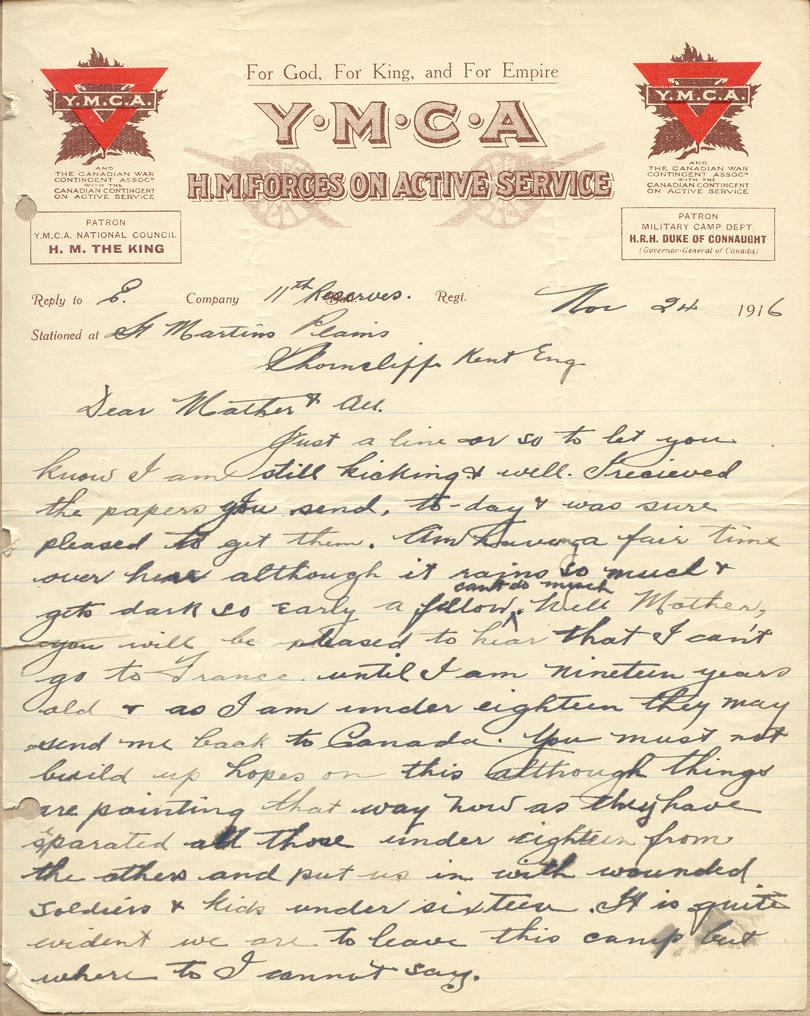 For God, For King, and For Empire
Y·M·C·A
H.M FORCES ON ACTIVE SERVICE
Y.M.C.A.
AND
THE CANADIAN WAR
CONTINGENT ASSOCN
WITH THE
CANADIAN CONTINGENT
ON ACTIVE SERVICE
PATRON
Y.M.C.A. NATIONAL COUNCIL
H. M. THE KING
Y.M.C.A.
AND
THE CANADIAN WAR
CONTINGENT ASSOCN
WITH THE
CANADIAN CONTINGENT
ON ACTIVE SERVICE
PATRON
MILITARY CAMP DEPT.
H.R.H. DUKE OF CONNAUGHT
(Governor-General of Canada)
Reply to E. Company 11th Reserves. Regt. Nov 24 1916
Stationed at St Martins Plains
Shorncliff Kent Eng
Dear Mother & All.
Just a line or so to let you
know I am still kicking & well. I recieved
the papers you send, to-day & was sure
pleased to get them. Am having a fair time
over here although it rains so much &
can't do much
gets dark so early a fellow. Well Mother,
you will be pleased to hear that I can't
go to France until I am nineteen years
old & as I am under eighteen they may
send me back to Canada. You must not
build up hopes on this although things
are pointing that way now as they have
sparated all those under eighteen from
the others and put us in with wounded
soldiers & kids under sixteen. It is quite
evident we are to leave this camp but
where to I cannot say.